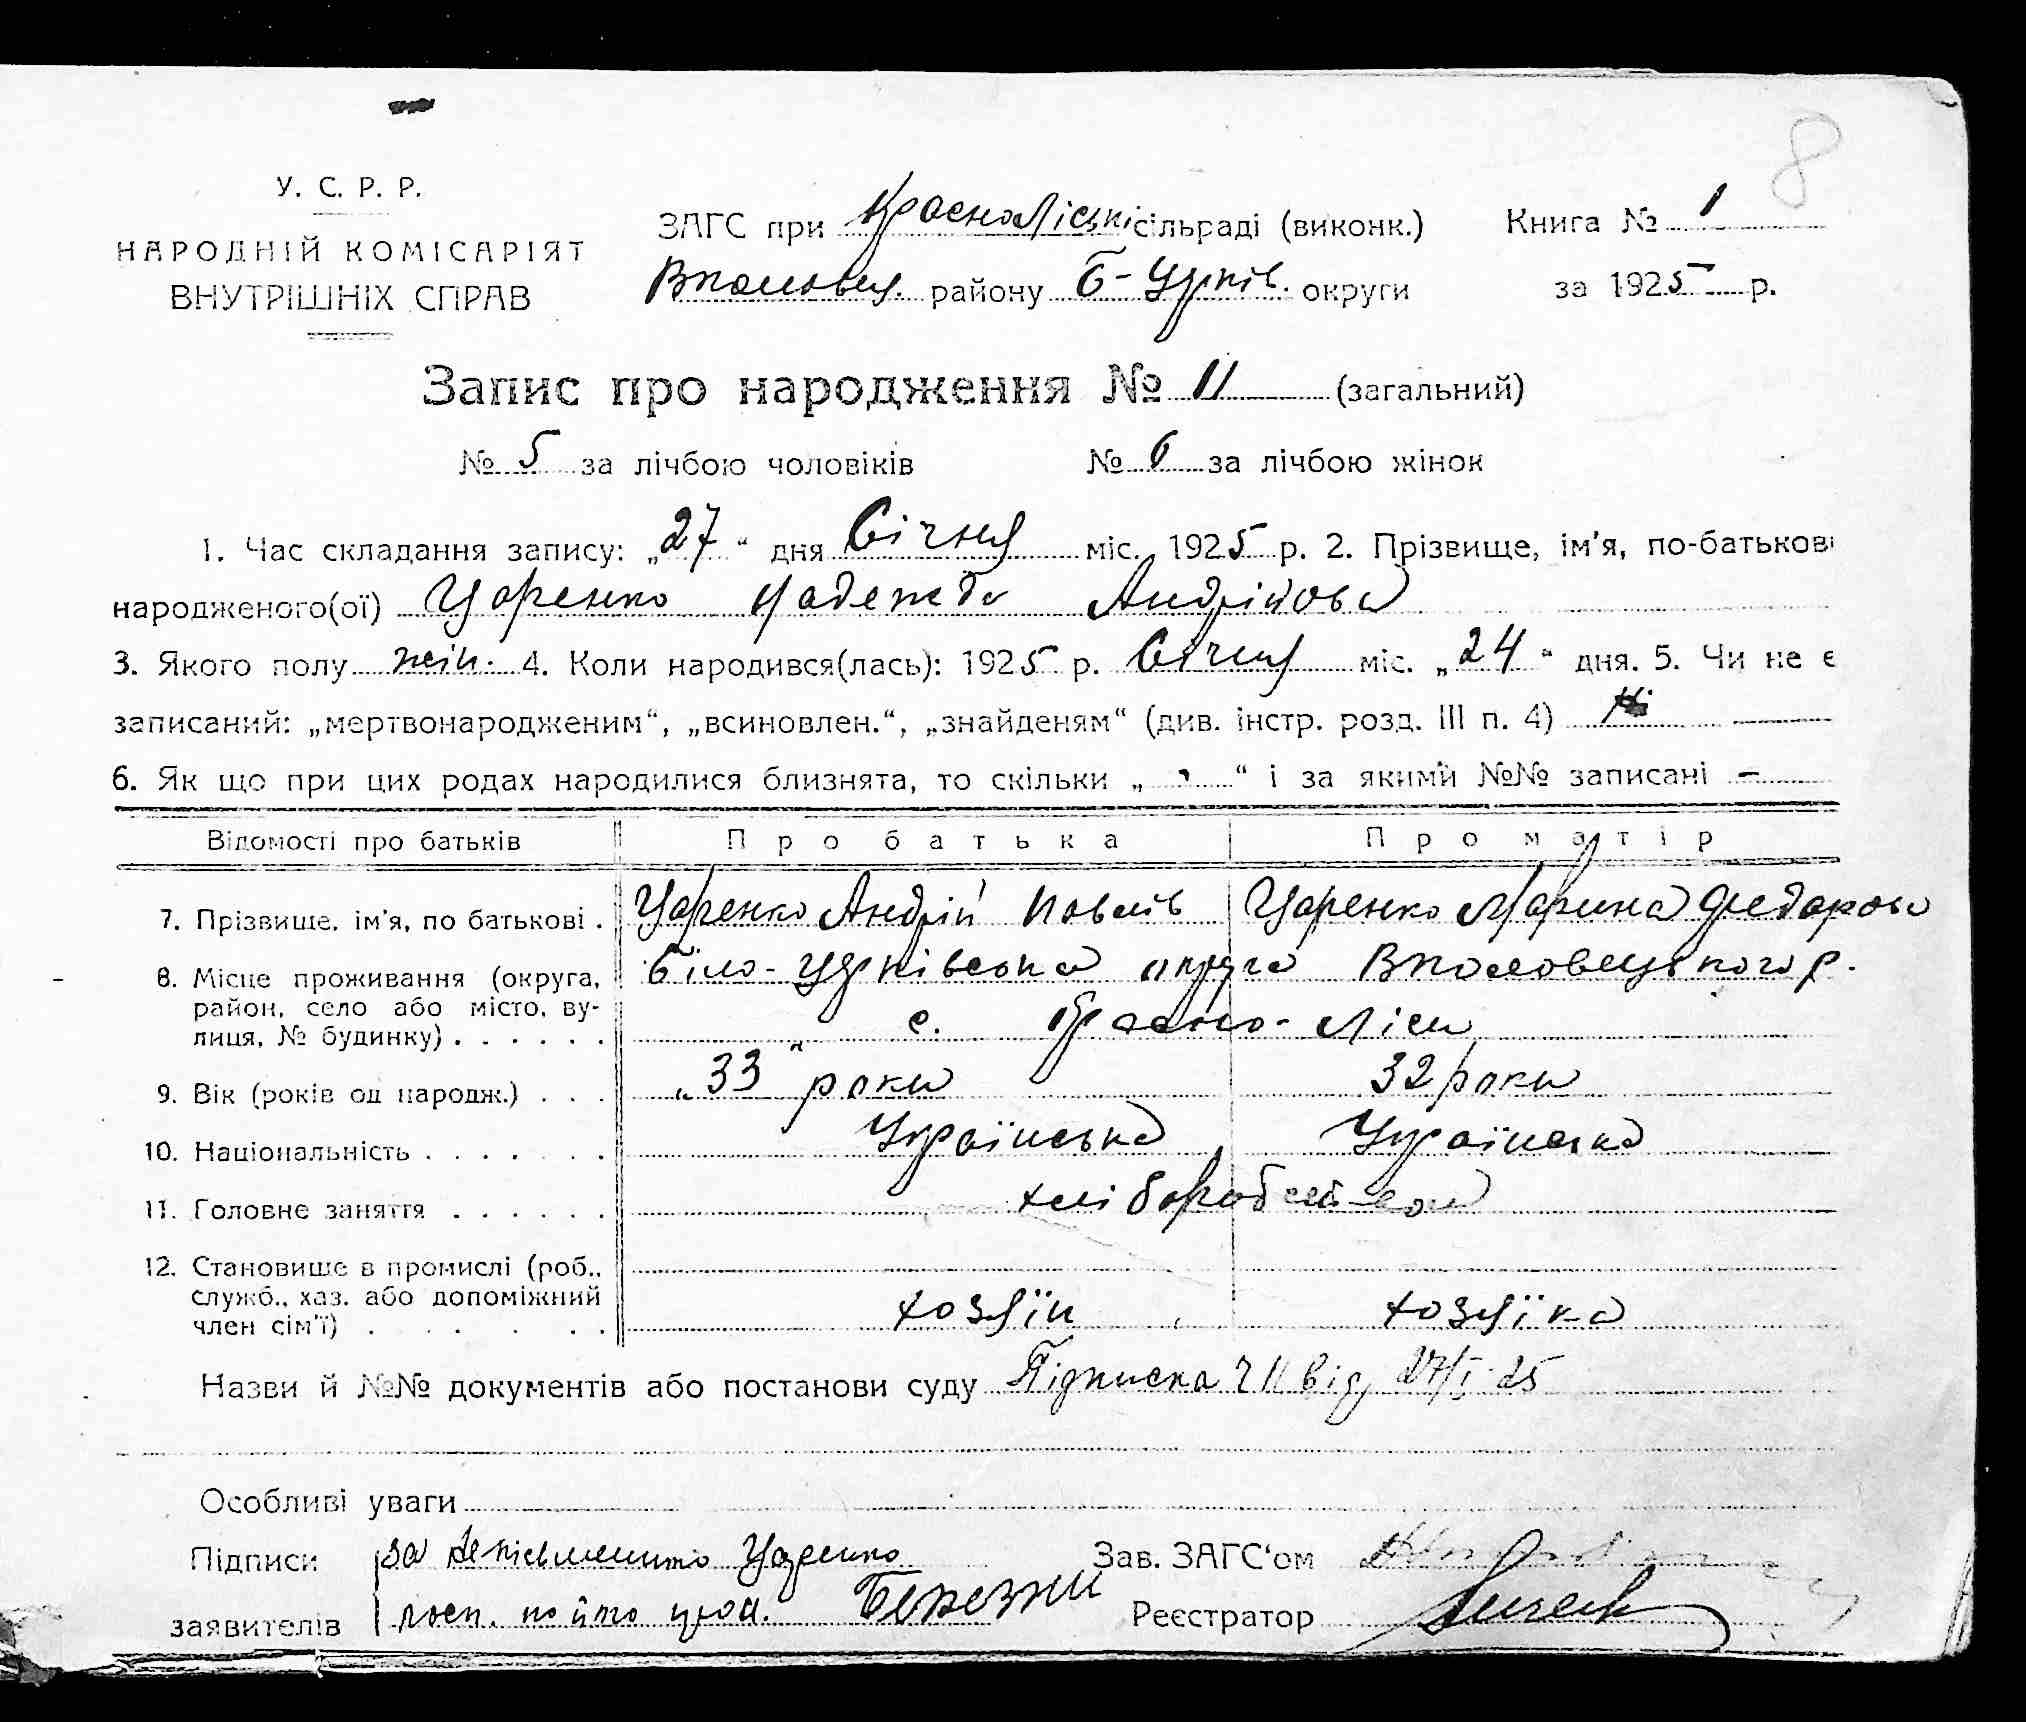 8
У. С. Р. Р.
НАРОДНІЙ КОМІСАРІЯТ
ВНУТРІШНІХ СПРАВ
ЗАГС при Красноліські сільраді (виконк.)
Вполовец. району Б-Церків. округи
Книга № 1
за 1925 р.
Запис про народження № 11 (загальний)
№ 5 за лічбою чоловіків № 6 за лічбою жінок
1. Час складання запису: „27“ дня Січня міс. 1925 р. 2. Прізвище, ім'я, по-батькові
народженого(ої) Царенко Надежда Андрійова
3. Якого полу жін. 4. Коли народився(лась): 1925 р. Січня міс. „24“ дня. 5. Чи не є
записаний: „мертвонародженим“, „всиновлен.“, „знайденям“ (див. інстр. розд. III п. 4) Ні
6. Як що при цих родах народилися близнята, то скільки „ “ і за якими №№ записані –
Відомості про батьків Про батька Про матір
7. Прізвище, ім'я, по батькові . Царенко Андрій Повлів Царенко Марина Федорова
8. Місце проживання (округа, район, село або місто, вулиця, № будинку) . . . . . . Біло-Церківська округа Вполовецького р.
с. Красно-Ліси
9. Вік (років од народж.) . . . „33“ роки 32 роки
10. Національність . . . . . . . Українська Українська
11. Головне заняття . . . . . . хлібороб
12. Становище в промислі (роб., служб., хаз. або допоміжний член сім'ї) . . . . . . хозяїн хозяїка
Назви й №№ документів або постанови суду Підписка Ч 11 від 27/I-25
Особливі уваги
Підписи за неписьменного Царенко Зав. ЗАГС'ом
заявителів росп. по його Березни Реєстратор